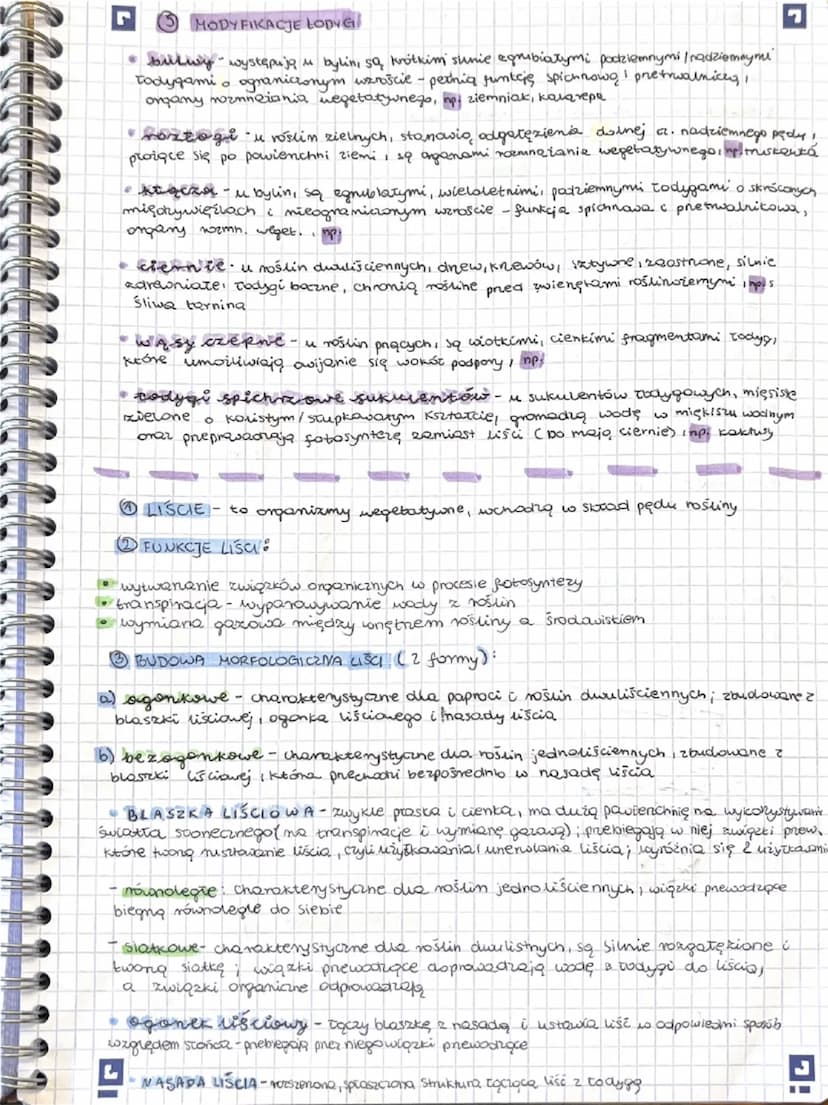 ⑤ MODYFIKACJE ŁODYGI
• bulwy - występują u bylin, są krótkimi silnie zgrubiałymi podziemnymi/nadziemnymi
łodygami o ograniczonym wzroście - pełnią funkcję spichrzową i przetrwalniczą,
organy rozmnażania wegetatywnego, np. ziemniak, kalarepa
• rozłogi - u roślin zielnych, stanowią odgałęzienia dolnej cz. nadziemnego pędu,
płożące się po powierzchni ziemi, są organami rozmnażania wegetatywnego, np. truskawka
• kłącza - u bylin, są zgrubiałymi, wieloletnimi, podziemnymi łodygami o skróconych
międzywęźlach i nieograniczonym wzroście - funkcja spichrzowa i przetrwalnikowa,
organy rozmn. weget., np.
• ciernie - u roślin dwuliściennych, drzew, krzewów, sztywne, zaostrzone, silnie
zdrewniałe, łodygi boczne, chronią roślinę przed zwierzętami roślinożernymi, np. s
śliwa tarnina
• wąsy czepne - u roślin pnących, są wiotkimi, cienkimi fragmentami łodyg,
które umożliwiają owijanie się wokół podpory, np.
• łodygi spichrzowe sukulentów - u sukulentów łodygowych, mięsiste
zielone o kolistym/słupkowatym kształcie, gromadzą wodę w miękiszu wodnym
oraz przeprowadzają fotosyntezę zamiast liści (bo mają ciernie), np. kaktusy
① LIŚCIE - to organizmy wegetatywne, wchodzą w skład pędu rośliny
② FUNKCJE LIŚCI:
• wytwarzanie związków organicznych w procesie fotosyntezy
• transpiracja - wyparowywanie wody z roślin
• wymiana gazowa między wnętrzem rośliny a środowiskiem
③ BUDOWA MORFOLOGICZNA LIŚCI (2 formy):
a) ogonkowe - charakterystyczne dla paproci i roślin dwuliściennych; zbudowane z
blaszki liściowej, ogonka liściowego i nasady liścia
b) bezogonkowe - charakterystyczne dla roślin jednoliściennych, zbudowane z
blaszki liściowej, która przechodzi bezpośrednio w nasadę liścia
• BLASZKA LIŚCIOWA - zwykle płaska i cienka, ma dużą powierzchnię na wykorzystywanie
światła słonecznego (na transpirację i wymianę gazową); przebiegają w niej związki przew.
które tworzą rusztowanie liścia, czyli użyłkowania/unerwienia liścia; wyróżnia się 2 użyłkowania
- równoległe: charakterystyczne dla roślin jednoliściennych; wiązki przewodzące
biegną równolegle do siebie
- siatkowe - charakterystyczne dla roślin dwulistnych, są silnie rozgałęzione i
tworzą siatkę; wiązki przewodzące doprowadzają wodę z łodygi do liścia,
a związki organiczne odprowadzają
• ogonek liściowy - łączy blaszkę z nasadą i ustawia liść w odpowiedni sposób
względem słońca - przebiegają przez niego wiązki przewodzące
• NASADA LIŚCIA - rozszerzona, spłaszczona struktura łącząca liść z łodygą